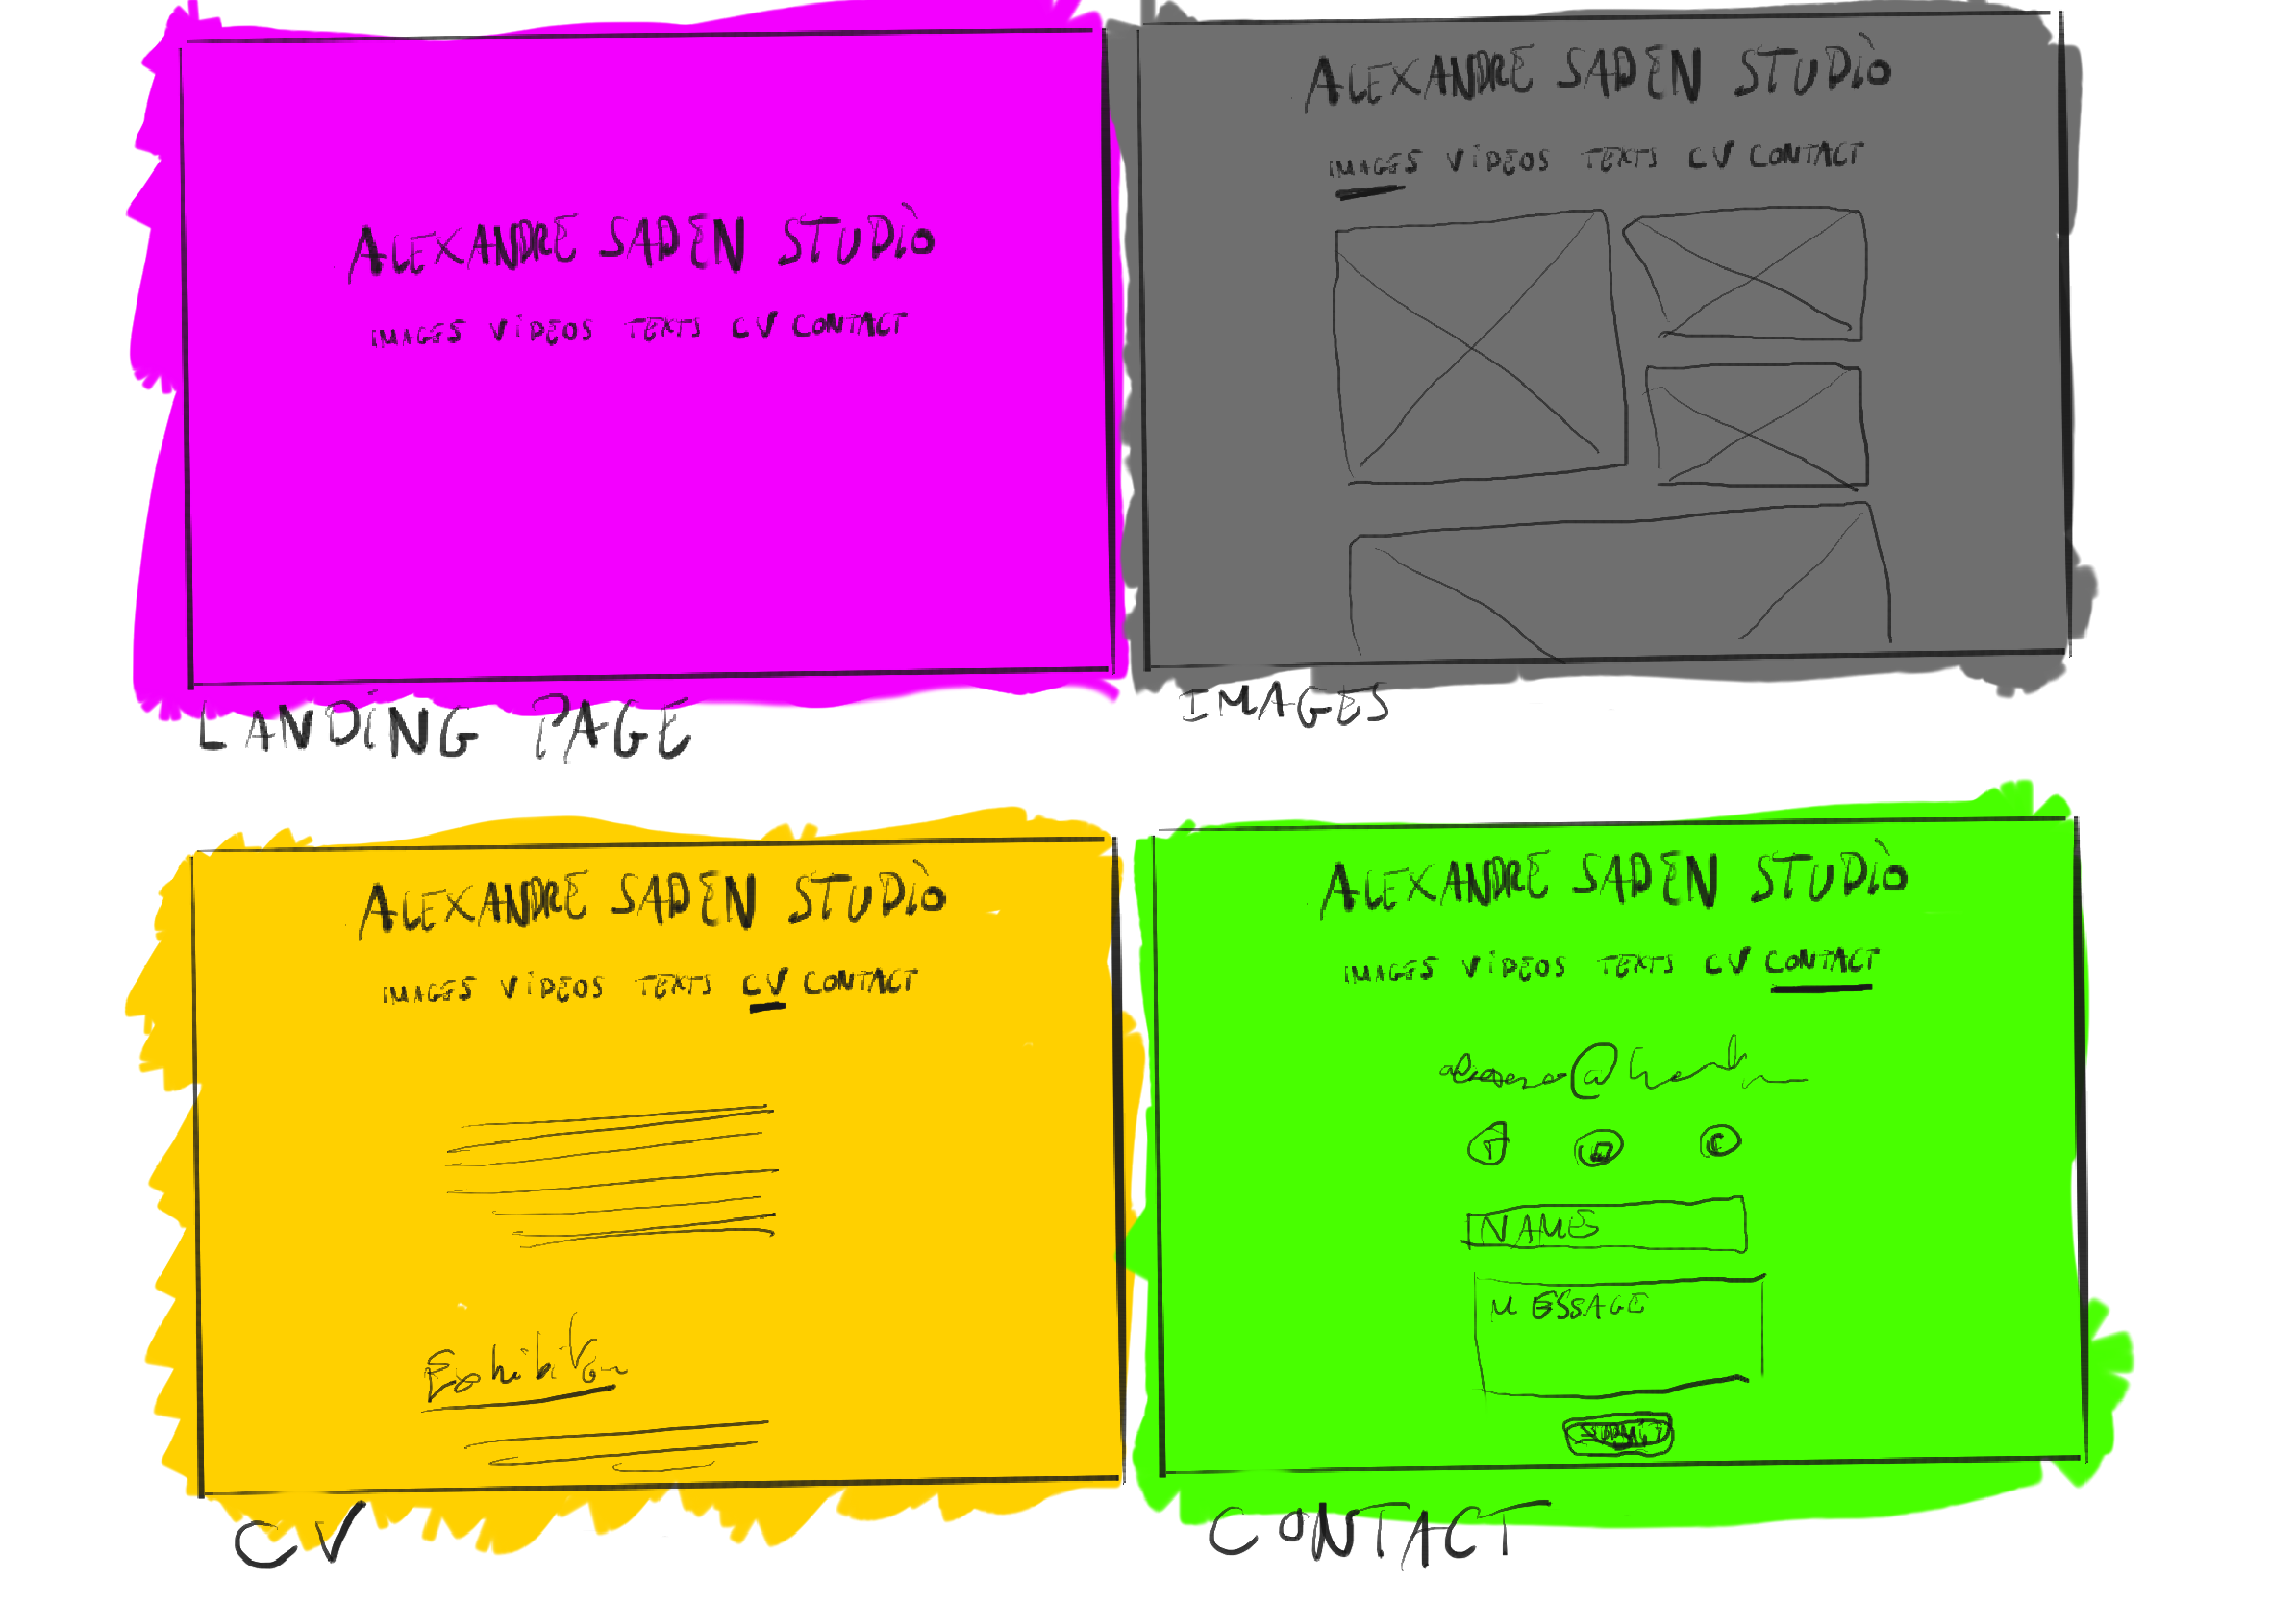 ALEXANDRE SADEN STUDIO
IMAGES VIDEOS TEXTS CV CONTACT
LANDING PAGE
ALEXANDRE SADEN STUDIO
IMAGES VIDEOS TEXTS CV CONTACT
IMAGES
ALEXANDRE SADEN STUDIO
IMAGES VIDEOS TEXTS CV CONTACT
Exhibition
CV
ALEXANDRE SADEN STUDIO
IMAGES VIDEOS TEXTS CV CONTACT
@
NAME
MESSAGE
SUBMIT
CONTACT